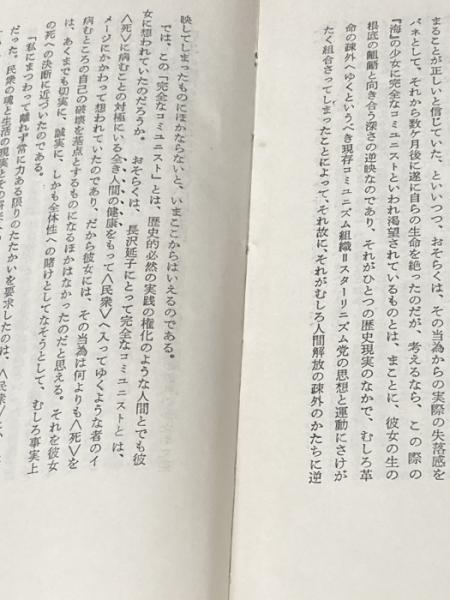 まることが正しいと信じていた、といいつつ、おそらくは、その当為からの実際の失落感を
バネとして、それから数ケ月後に遂に自らの生命を絶ったのだが、考えるなら、この際の
『海』の少女に完全なコミュニストといわれ渇望されているものとは、まことに、彼女の生の
根底の齟齬と向き合う深さの逆映なのであり、それがひとつの歴史現実のなかで、むしろ革
命の疎外へゆくというべき現存コミュニズム組織＝スターリニズム党の思想と運動にさけが
たく組合さってしまったことによって、それ故に、それがむしろ人間解放の疎外のかたちに逆
映してしまったものにほかならないと、いまここからはいえるのである。
では、この「完全なコミュニスト」とは、歴史的必然の実践の権化のような人間とでも彼
女に想われていたのだろうか。　おそらくは、長沢延子にとって完全なコミュニストとは、
〈死〉に病むことの対極にいる全き人間の健康をもって〈民衆〉へ入ってゆくような者のイ
メージにかかわって想われていたのであり、だから彼女には、その当為は何よりも〈死〉を
病むところの自己の破壊を基点とするものになるほかはなかったのだと思える。それを彼女
は、あくまでも切実に、誠実に、しかも全体性への賭けとしてなそうとして、むしろ事実上
の死への決断に近づいたのである。
「私にまつわって離れず常に力ある限りのたたかいを要求したのは、〈民衆〉
だった。民衆の魂と生活の現実とその